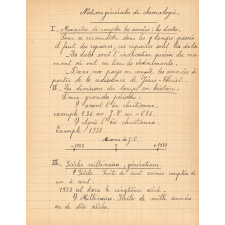 Notions générales de chronologie.
I_ Manière de compter les années : les dates.
Pour se reconnaître dans le temps passé
il faut des repaires; ces repaires sont les dates.
_ Les dates sont l'indication précise du mo-
ment où ont eu lieu les événements.
_ Dans nos pays on compte les années à
partir de la naissance de Jésus-Christ.
II_ Les divisions du temps en histoire.
Deux grandes périodes :
1) avant l'ère chrétienne.
exemple 58 av J.C. ou -58.
2) depuis l'ère chrétienne.
Exemple 1938
Naissance de J.C.
-1938 0 +1938
III_ Siècles millénaires, générations.
1) Siècle. Suite de cent années comptées de
un à cent.
1938 est dans le vingtième siècle.
2) Millénaire. Suite de mille années
ou de dix siècles.